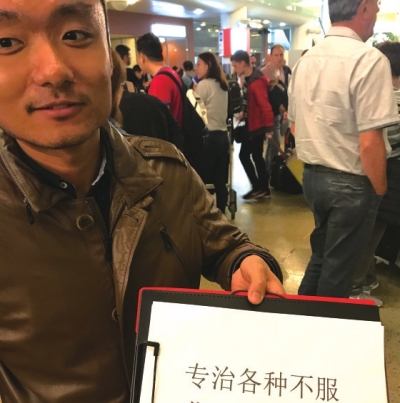 专治各种不服